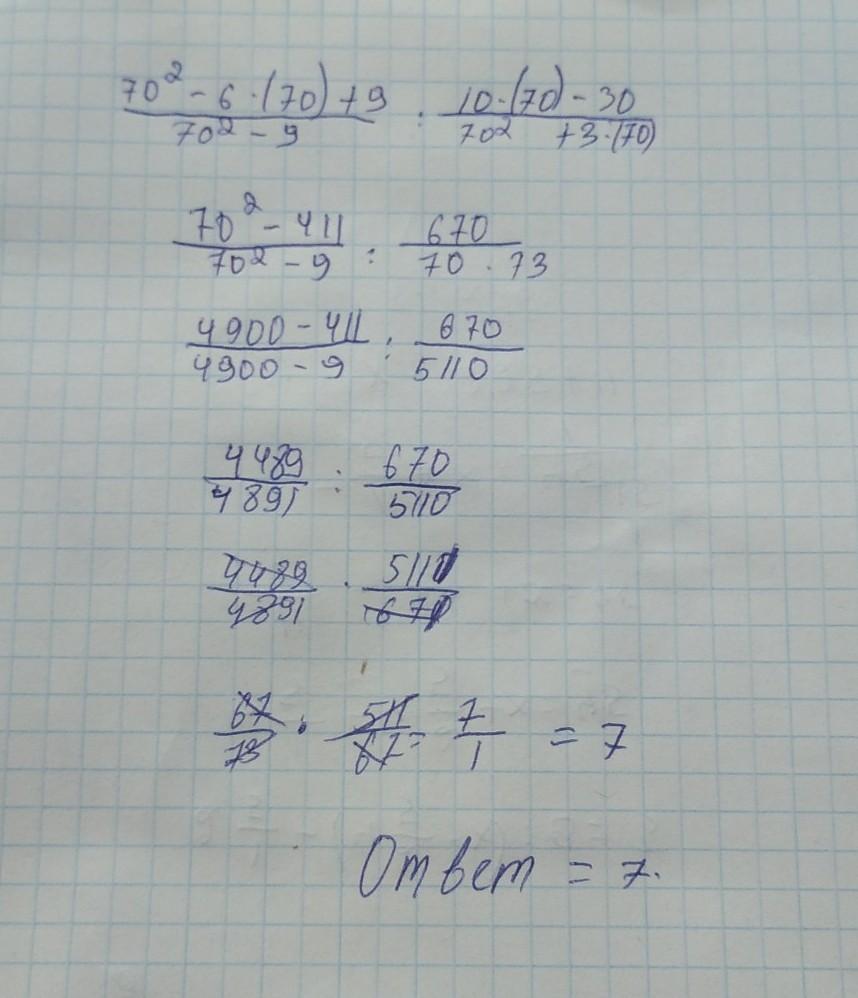 (70² - 6 · (70) + 9)/(70² - 9) : (10·(70) - 30)/(70² + 3·(70))
(70² - 411)/(70² - 9) : 670/(70 · 73)
(4900 - 411)/(4900 - 9) : 670/5110
4489/4891 : 670/5110
4489/4891 · 5110/670
67/73 · 511/67 = 7/1 = 7
Ответ = 7.